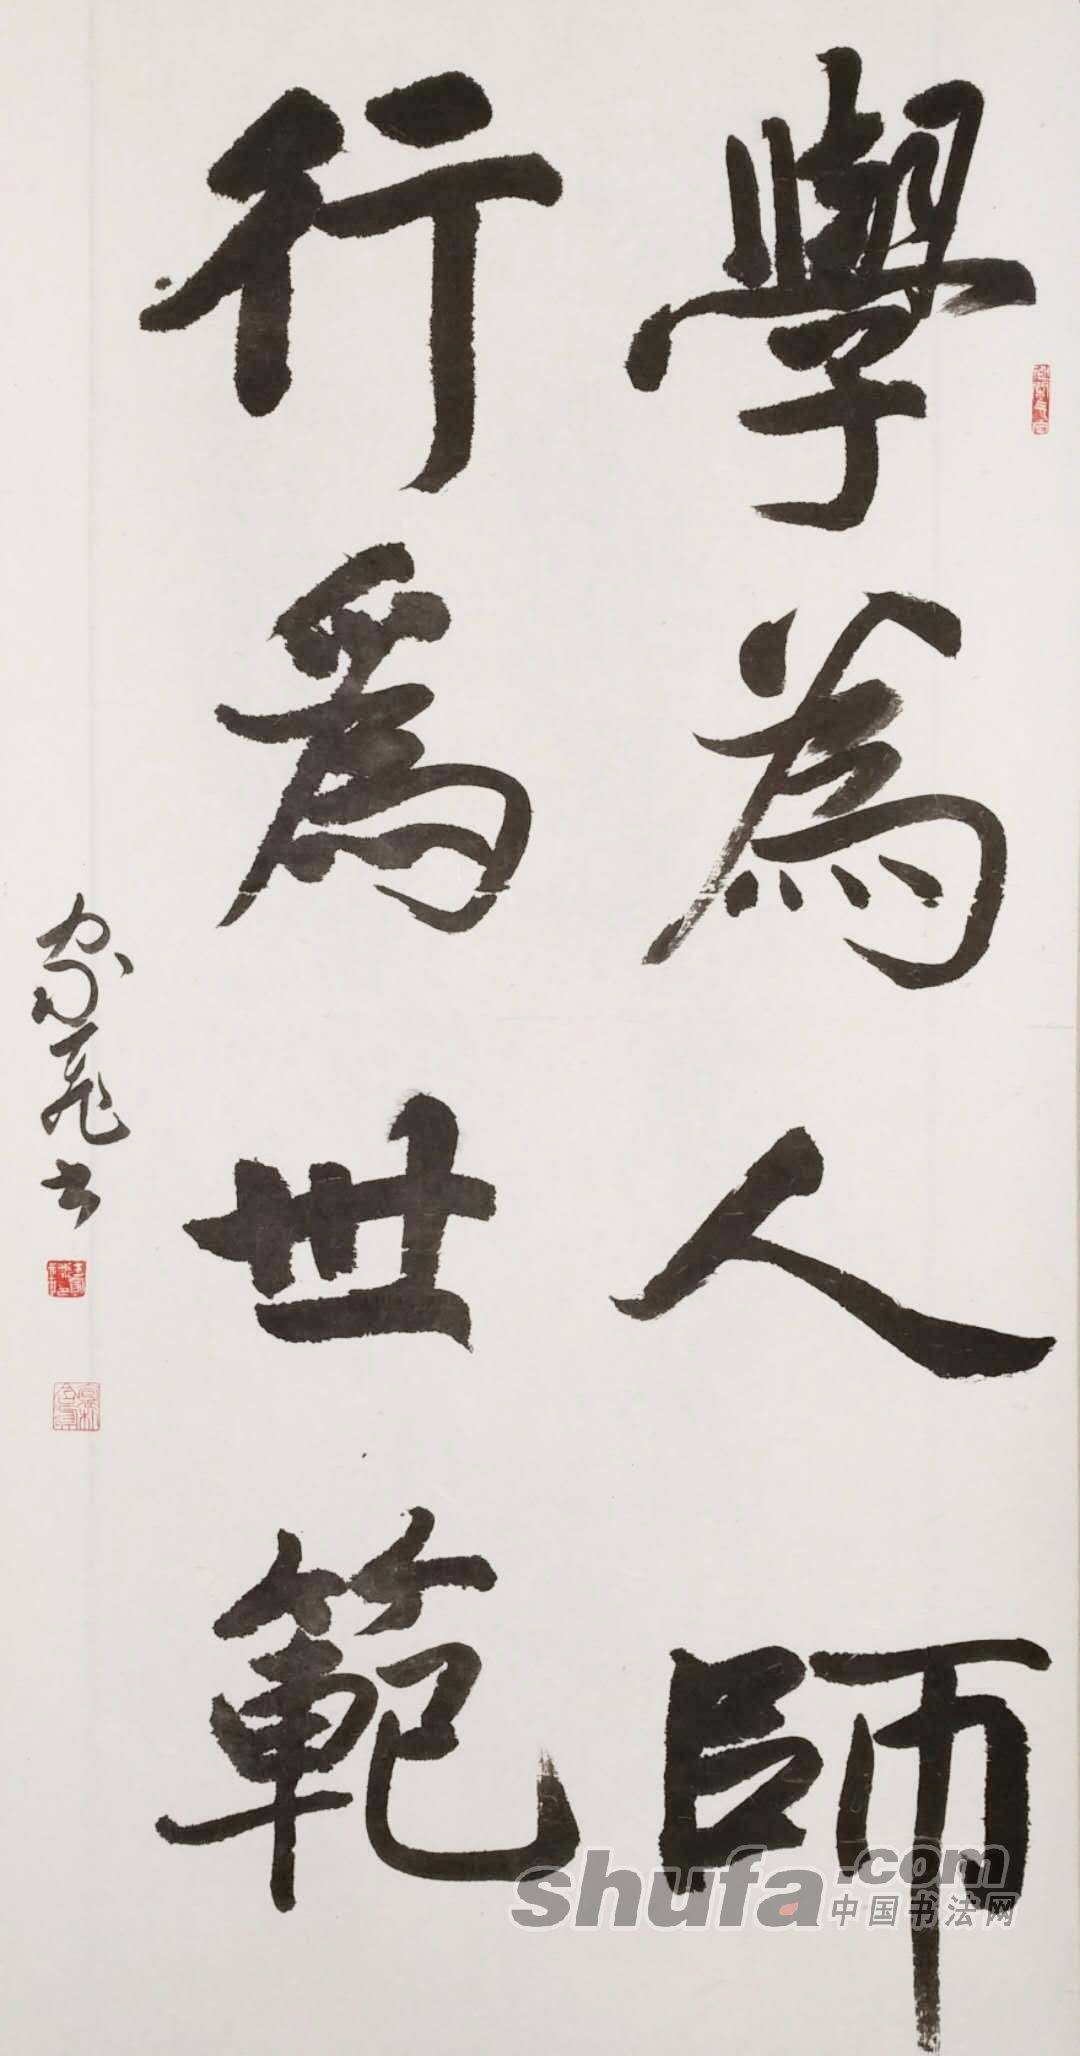 學為人師
行為世範
家森书
shufa.com
中国书法网